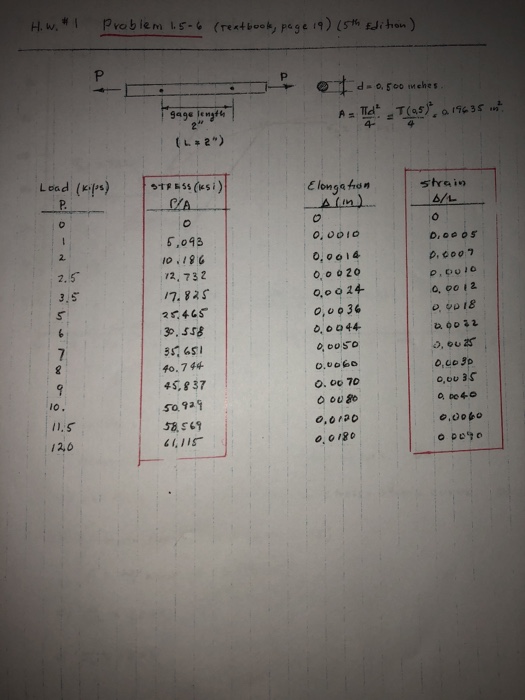 H.W. #1 Problem 1.5-6 (Textbook, page 19) (5th Edition)
P P
d = 0.500 inches.
gage length
2"
(L = 2")
A = πd²/4 = π(0.5)²/4 = 0.19635 in².
Load (kips) STRESS (ksi) Elongation strain
P. P/A Δ (in) Δ/L
0 0 0 0
1 5.093 0.0010 0.0005
2 10.186 0.0014 0.0007
2.5 12.732 0.0020 0.0010
3.5 17.825 0.0024 0.0012
5 25.465 0.0036 0.0018
6 30.558 0.0044 0.0022
7 35.651 0.0050 0.0025
8 40.744 0.0060 0.0030
9 45.837 0.0070 0.0035
10. 50.929 0.0080 0.0040
11.5 58.569 0.0120 0.0060
12.0 61.115 0.0180 0.0090